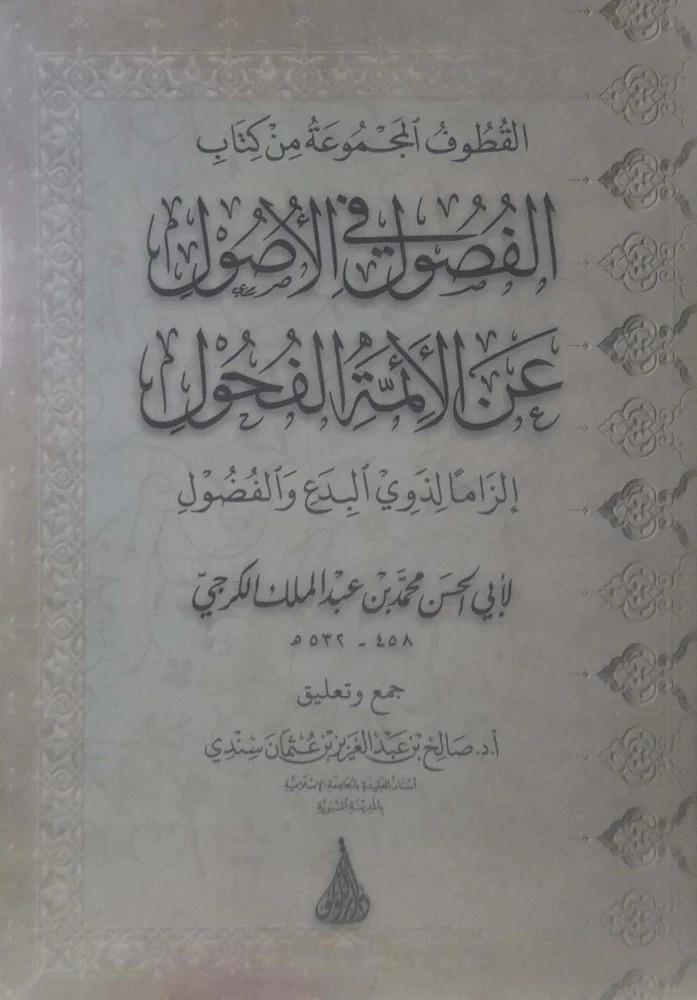 القُطُوفُ ٱلمَجْمُوعَةُ مِنْ كِتَابِ
الفُصُولِ فِي الأُصُولِ
عَنِ الأَئِمَّةِ الفُحُولِ
إِلزَامًا لِذَوِيْ ٱلبِدَعِ وَٱلفُضُولِ
لأبي الحسن محمَّد بن عبد الملك الكرجيّ
٤٥٨ - ٥٣٢ هـ
جمع وتعليق
أ.د. صَالِح بْن عَبْد العَزِيز بْن عُثْمَان سِنْدِي
أستاذ العقيدة بالجامعة الإسلامية
بالمدينة النبوية